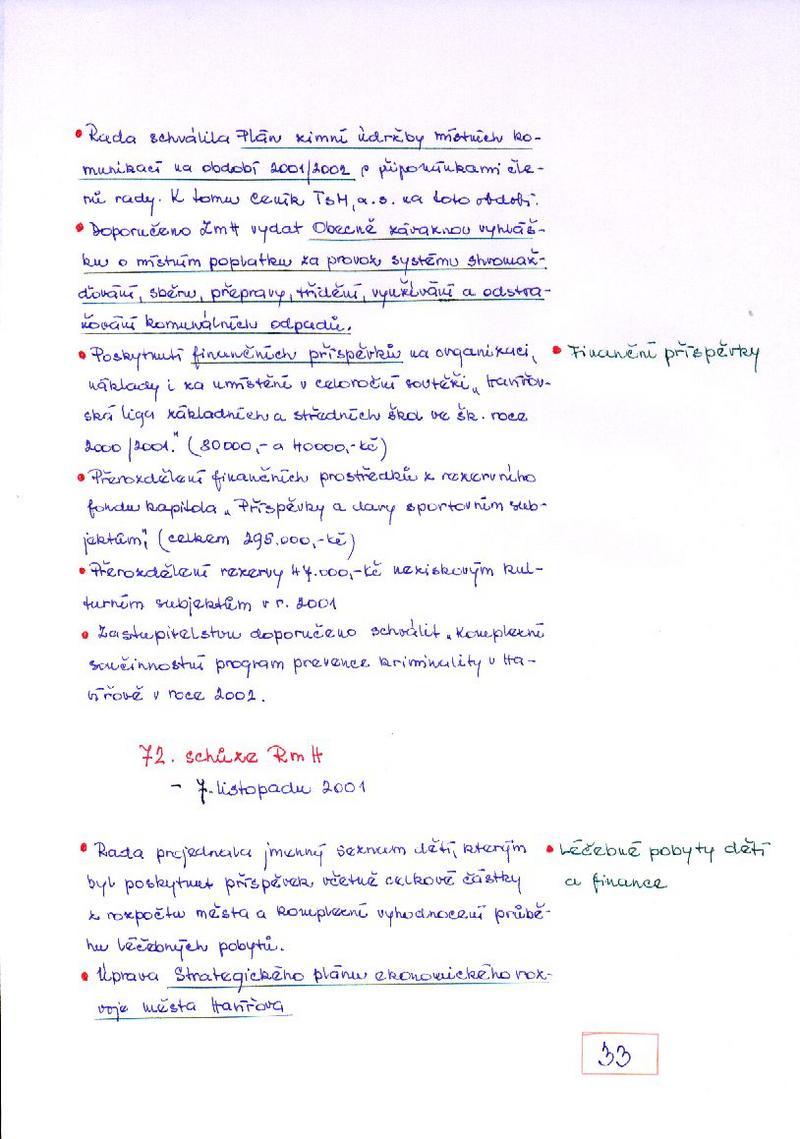 • Rada schválila Plán zimní údržby místních ko-
munikací na období 2001/2002 s připomínkami čle-
nů rady. K tomu ceník TSH, a.s. na toto období.
• Doporučeno ZmH vydat Obecně závaznou vyhláš-
ku o místním poplatku za provoz systému shromaž-
ďování, sběru, přepravy, třídění, využívání a odstra-
ňování komunálních odpadů.
• Poskytnutí finančních příspěvků na organizaci,
náklady i za umístění v celoroční soutěži „Havířov-
ská liga základních a středních škol ve šk. roce
2000/2001." (80000,- a 40000,-Kč)
• Přerozdělení finančních prostředků z rezervního
fondu kapitola „Příspěvky a dary sportovním sub-
jektům", (celkem 298.000,-Kč)
• Přerozdělení rezervy 47.000,-Kč neziskovým kul-
turním subjektům v r. 2001
• Zastupitelstvu doporučeno schválit „Komplexní
součinnostní program prevence kriminality v Ha-
vířově v roce 2002.
• Finanční příspěvky
72. schůze RmH
- 7. listopadu 2001
• Rada projednala jmenný seznam dětí, kterým
byl poskytnut příspěvek včetně celkové částky
z rozpočtu města a komplexní vyhodnocení průbě-
hu léčebných pobytů.
• Úprava Strategického plánu ekonomického roz-
voje města Havířova
• Léčebné pobyty dětí
a finance
33